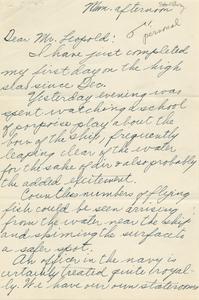 Mon. afternoon
personal
Dear Mr. Leopold:
I have just completed
my first day on the high
seas since Dec.
Yesterday evening was
spent watching a school
of porpoise play about the
bow of the ship, frequently
leaping clear of the water
for the sake of dorsals probably
the added excitement.
Countless numbers of flying
fish could be seen arising
from the water near the ship
and skimming the surface to
a safer spot.
An officer in the navy is
certainly treated quite royal-
ly. We have our own stateroom